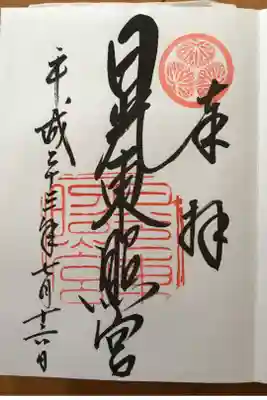 奉拝
日光東照宮
平成二十三年七月十六日